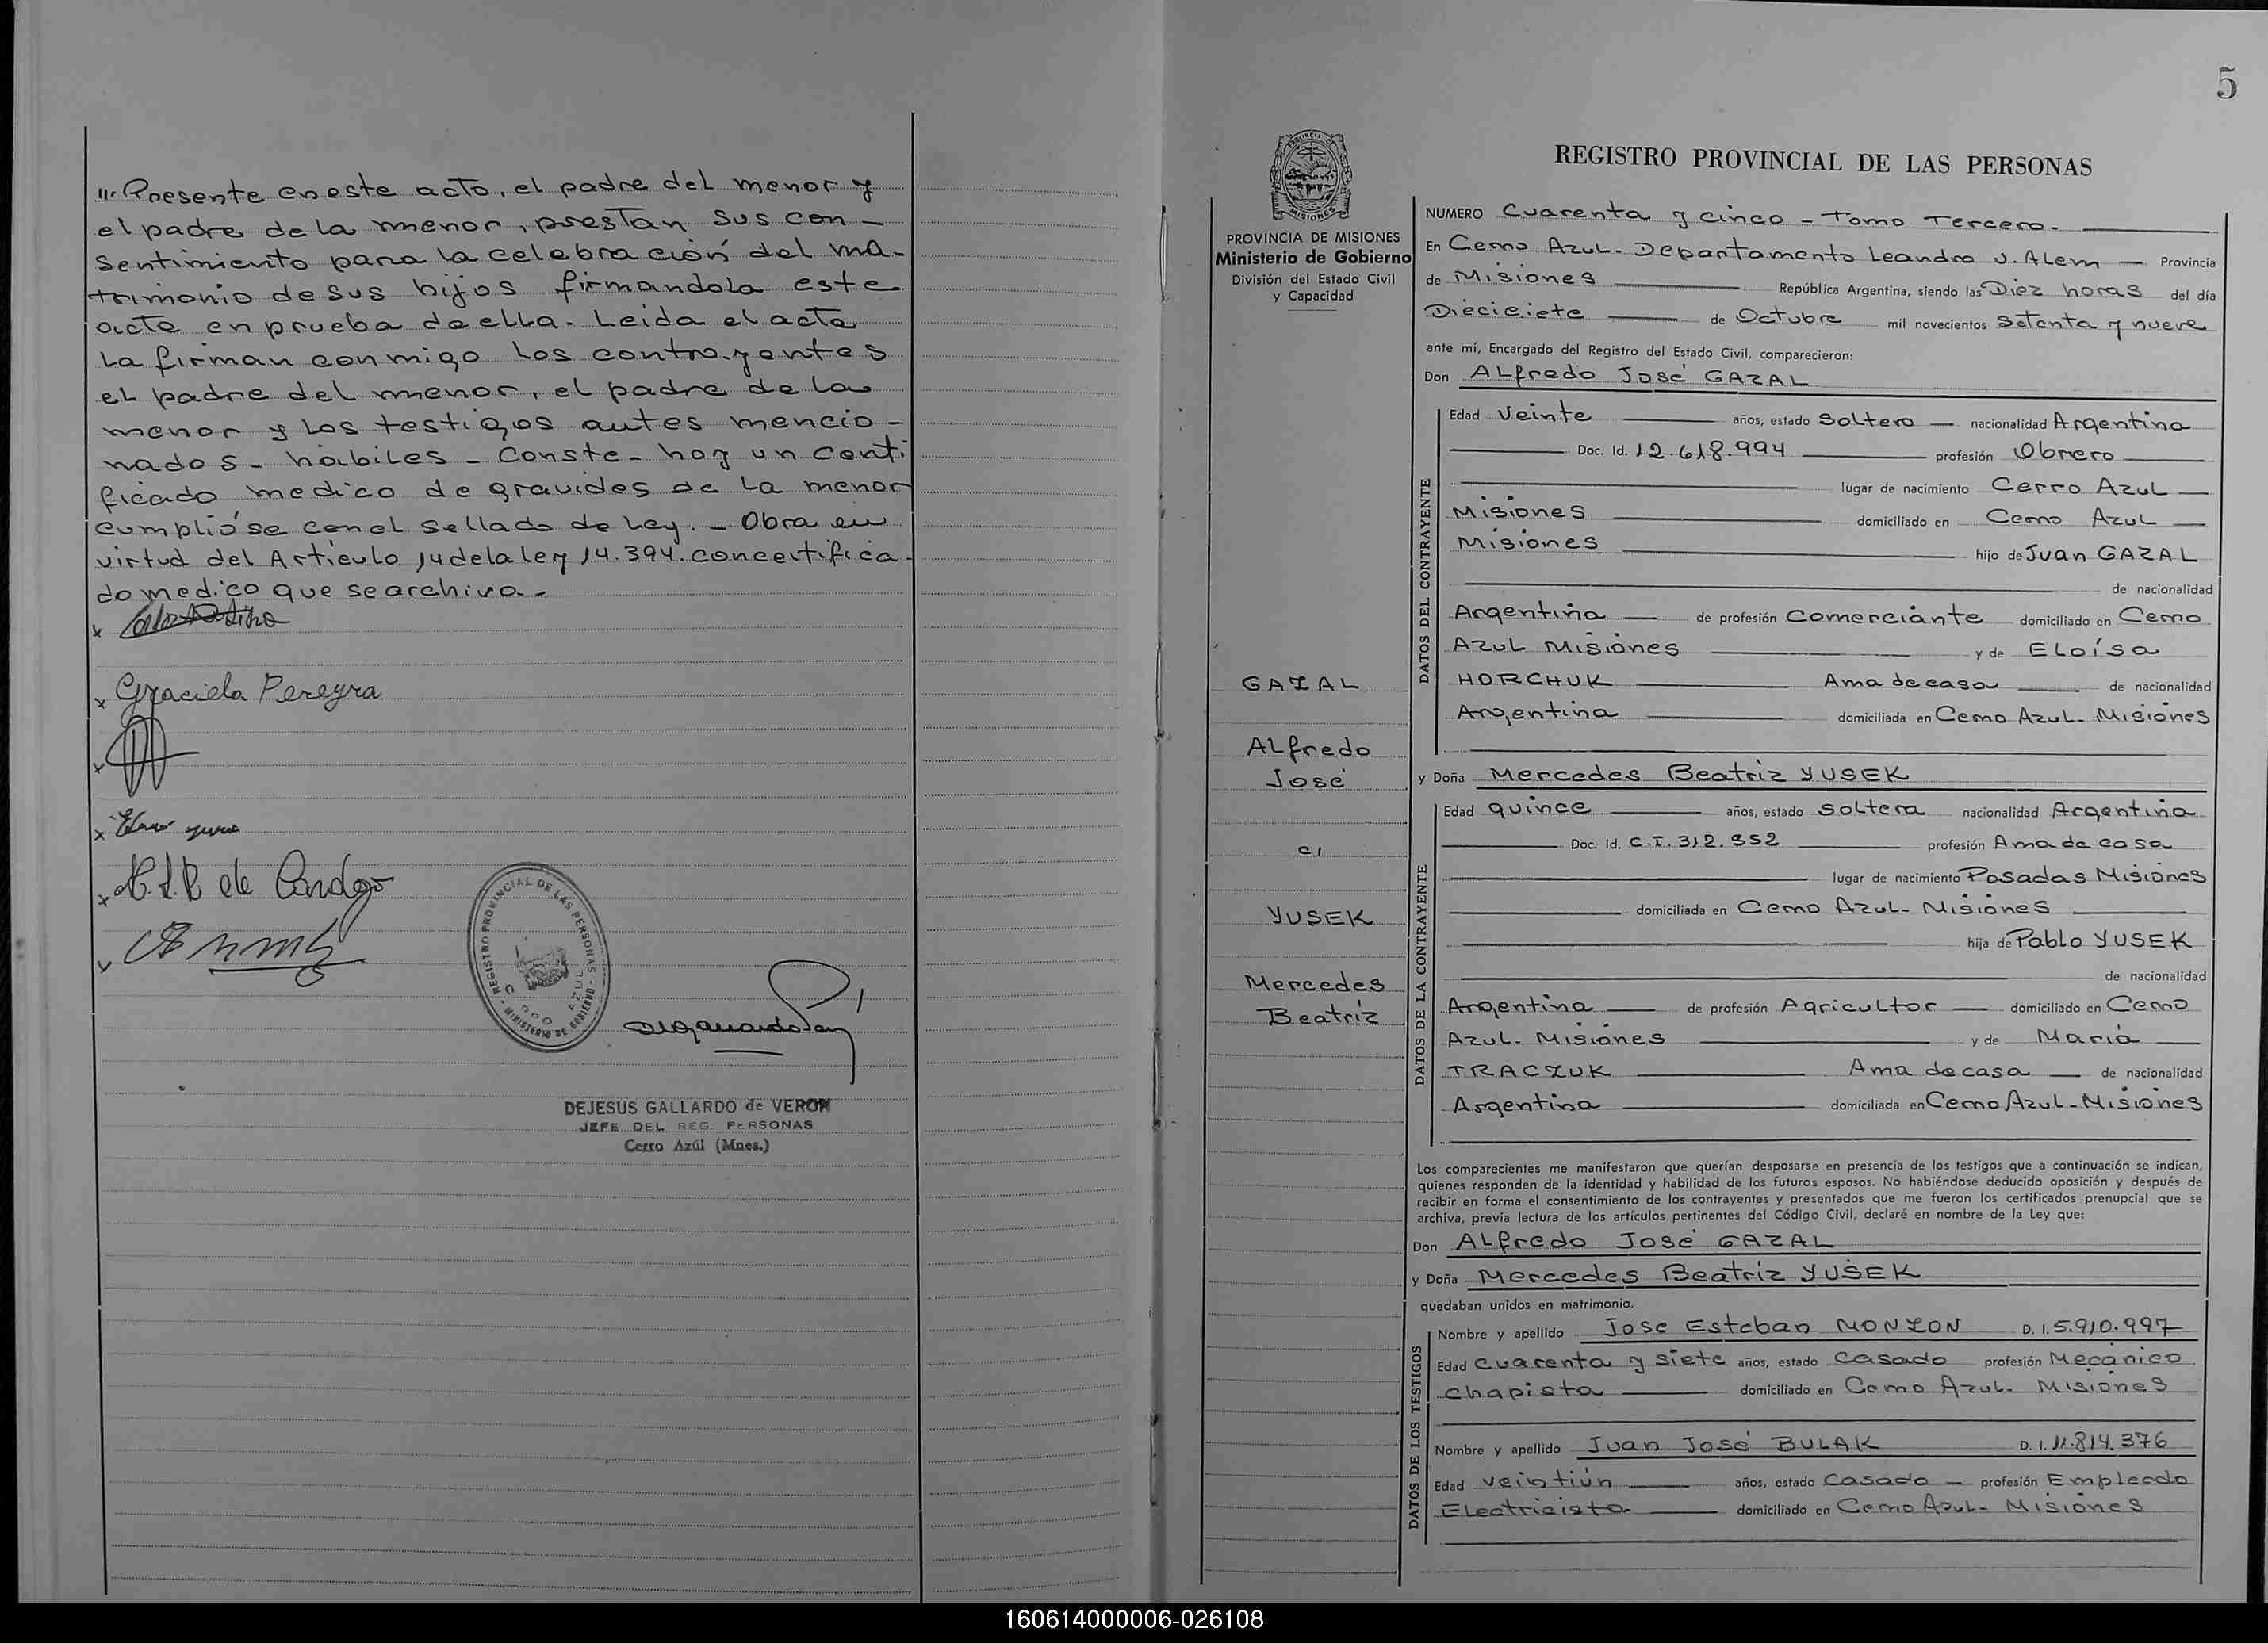 "' Presente en este acto, el padre del menor y
el padre de la menor, prestan sus con-
sentimiento para la celebración del ma-
trimonio de sus hijos firmandola este
acto en prueba de ella. Leida el acta
la firman conmigo los contrayentes
el padre del menor, el padre de la
menor y los testigos antes mencio-
nados - hábiles - Conste - hoy un certi
ficado medico de gravides de la menor
cumplióse con el sellado de ley. - Obra en
virtud del Artículo 14 de la ley 14.394. con certifica-
do medico que se archiva -
x
x Graciela Pereyra
x
x
x H.L.B de Cardozo
x
REGISTRO PROVINCIAL DE LAS PERSONAS - MINISTERIO DE GOBIERNO -
DEJESUS GALLARDO de VERON
JEFE DEL REG. PERSONAS
Cerro Azúl (Mnes.)
5
PROVINCIA DE
MISIONES
PROVINCIA DE MISIONES
Ministerio de Gobierno
División del Estado Civil
y Capacidad
GAZAL
Alfredo
José
c/
YUSEK
Mercedes
Beatríz
REGISTRO PROVINCIAL DE LAS PERSONAS
NUMERO Cuarenta y cinco - Tomo Tercero.
En Cerro Azul - Departamento Leandro N. Alem — Provincia
de Misiones República Argentina, siendo las Diez horas del día
Diecisiete de Octubre mil novecientos setenta y nueve
ante mí, Encargado del Registro del Estado Civil, comparecieron:
Don Alfredo José GAZAL
DATOS DEL CONTRAYENTE
Edad Veinte años, estado Soltero — nacionalidad Argentina
Doc. Id. 12.618.994 profesión Obrero
lugar de nacimiento Cerro Azul
Misiones domiciliado en Cerro Azul
Misiones hijo de Juan GAZAL
de nacionalidad
Argentina de profesión Comerciante domiciliado en Cerro
Azul Misiones y de Eloísa
HORCHUK Ama de casa de nacionalidad
Argentina domiciliada en Cerro Azul - Misiones
y Doña Mercedes Beatriz YUSEK
DATOS DE LA CONTRAYENTE
Edad quince años, estado soltera nacionalidad Argentina
Doc. Id. C.I. 312.952 profesión Ama de casa
lugar de nacimiento Posadas Misiones
domiciliada en Cerro Azul - Misiones
hija de Pablo YUSEK
de nacionalidad
Argentina de profesión Agricultor domiciliado en Cerro
Azul - Misiones y de María
TRACZUK Ama de casa de nacionalidad
Argentina domiciliada en Cerro Azul - Misiones
Los comparecientes me manifestaron que querían desposarse en presencia de los testigos que a continuación se indican,
quienes responden de la identidad y habilidad de los futuros esposos. No habiéndose deducido oposición y después de
recibir en forma el consentimiento de los contrayentes y presentados que me fueron los certificados prenupcial que se
archiva, previa lectura de los artículos pertinentes del Código Civil, declaré en nombre de la Ley que:
Don Alfredo José GAZAL
y Doña Mercedes Beatríz YUSEK
quedaban unidos en matrimonio.
DATOS DE LOS TESTIGOS
Nombre y apellido Jose Esteban MONZON D. I. 5.910.997
Edad cuarenta y siete años, estado Casado profesión Mecánico
Chapista domiciliado en Cerro Azul - Misiones
Nombre y apellido Juan José BULAK D. I. 11.814.376
Edad veintiún años, estado Casado — profesión Empleado
Electricista domiciliado en Cerro Azul - Misiones
160614000006-026108